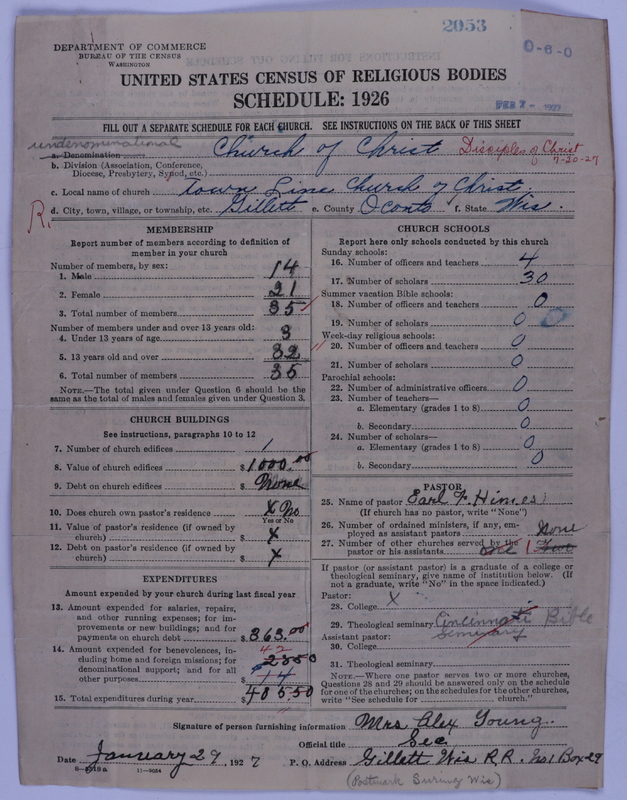 2053
DEPARTMENT OF COMMERCE
BUREAU OF THE CENSUS
WASHINGTON
0-6-0
UNITED STATES CENSUS OF RELIGIOUS BODIES
SCHEDULE: 1926
FEB 7 - 1927
FILL OUT A SEPARATE SCHEDULE FOR EACH CHURCH. SEE INSTRUCTIONS ON THE BACK OF THIS SHEET
undenominational
a. Denomination Church of Christ Disciples of Christ
7-20-27
b. Division (Association, Conference,
Diocese, Presbytery, Synod, etc.)
c. Local name of church Town Line Church of Christ.
R. d. City, town, village, or township, etc. Gillett e. County Oconto f. State Wis.
MEMBERSHIP
Report number of members according to definition of
member in your church
Number of members, by sex:
1. Male 14
2. Female 21
3. Total number of members 35
Number of members under and over 13 years old:
4. Under 13 years of age 3
5. 13 years old and over 32
6. Total number of members 35
NOTE.—The total given under Question 6 should be
same as the total of males and females given under Question 3.
CHURCH BUILDINGS
See instructions, paragraphs 10 to 12
7. Number of church edifices 1
8. Value of church edifices $1000.00
9. Debt on church edifices $None
10. Does church own pastor's residence x No
Yes or No
11. Value of pastor's residence (if owned by
church) $ x
12. Debt on pastor's residence (if owned by
church) $ x
EXPENDITURES
Amount expended by your church during last fiscal year
13. Amount expended for salaries, repairs,
and other running expenses; for im-
provements or new buildings; and for
payments on church debt $363.00
14. Amount expended for benevolences, in-
cluding home and foreign missions; for
denominational support; and for all
other purposes $
42
2850
14
15. Total expenditures during year $40550
CHURCH SCHOOLS
Report here only schools conducted by this church
Sunday schools:
16. Number of officers and teachers 4
17. Number of scholars 30
Summer vacation Bible schools:
18. Number of officers and teachers 0
19. Number of scholars 0
Week-day religious schools:
20. Number of officers and teachers 0
21. Number of scholars 0
Parochial schools:
22. Number of administrative officers 0
23. Number of teachers—
a. Elementary (grades 1 to 8) 0
b. Secondary 0
24. Number of scholars—
a. Elementary (grades 1 to 8) 0
b. Secondary 0
PASTOR
25. Name of pastor Earl F. Himes
(If church has no pastor, write "None")
26. Number of ordained ministers, if any, em-
ployed as assistant pastors None
27. Number of other churches served by the
pastor or his assistants one 1
If pastor (or assistant pastor) is a graduate of a college or
theological seminary, give name of institution below. (If
not a graduate, write "No" in the space indicated.)
Pastor:
28. College x
29. Theological seminary Cincinnati Bible
Seminary
Assistant pastor:
30. College
31. Theological seminary
NOTE.—Where one pastor serves two or more churches,
Questions 28 and 29 should be answered only on the schedule
for one of the churches; on the schedules for the other churches,
write "See schedule for church."
Signature of person furnishing information Mrs Alex Young.
Official title Sec
Date January 29, 1927 P. O. Address Gillett Wis R.R. No1 Box-29
11-9084
(Postmark Suring Wis)